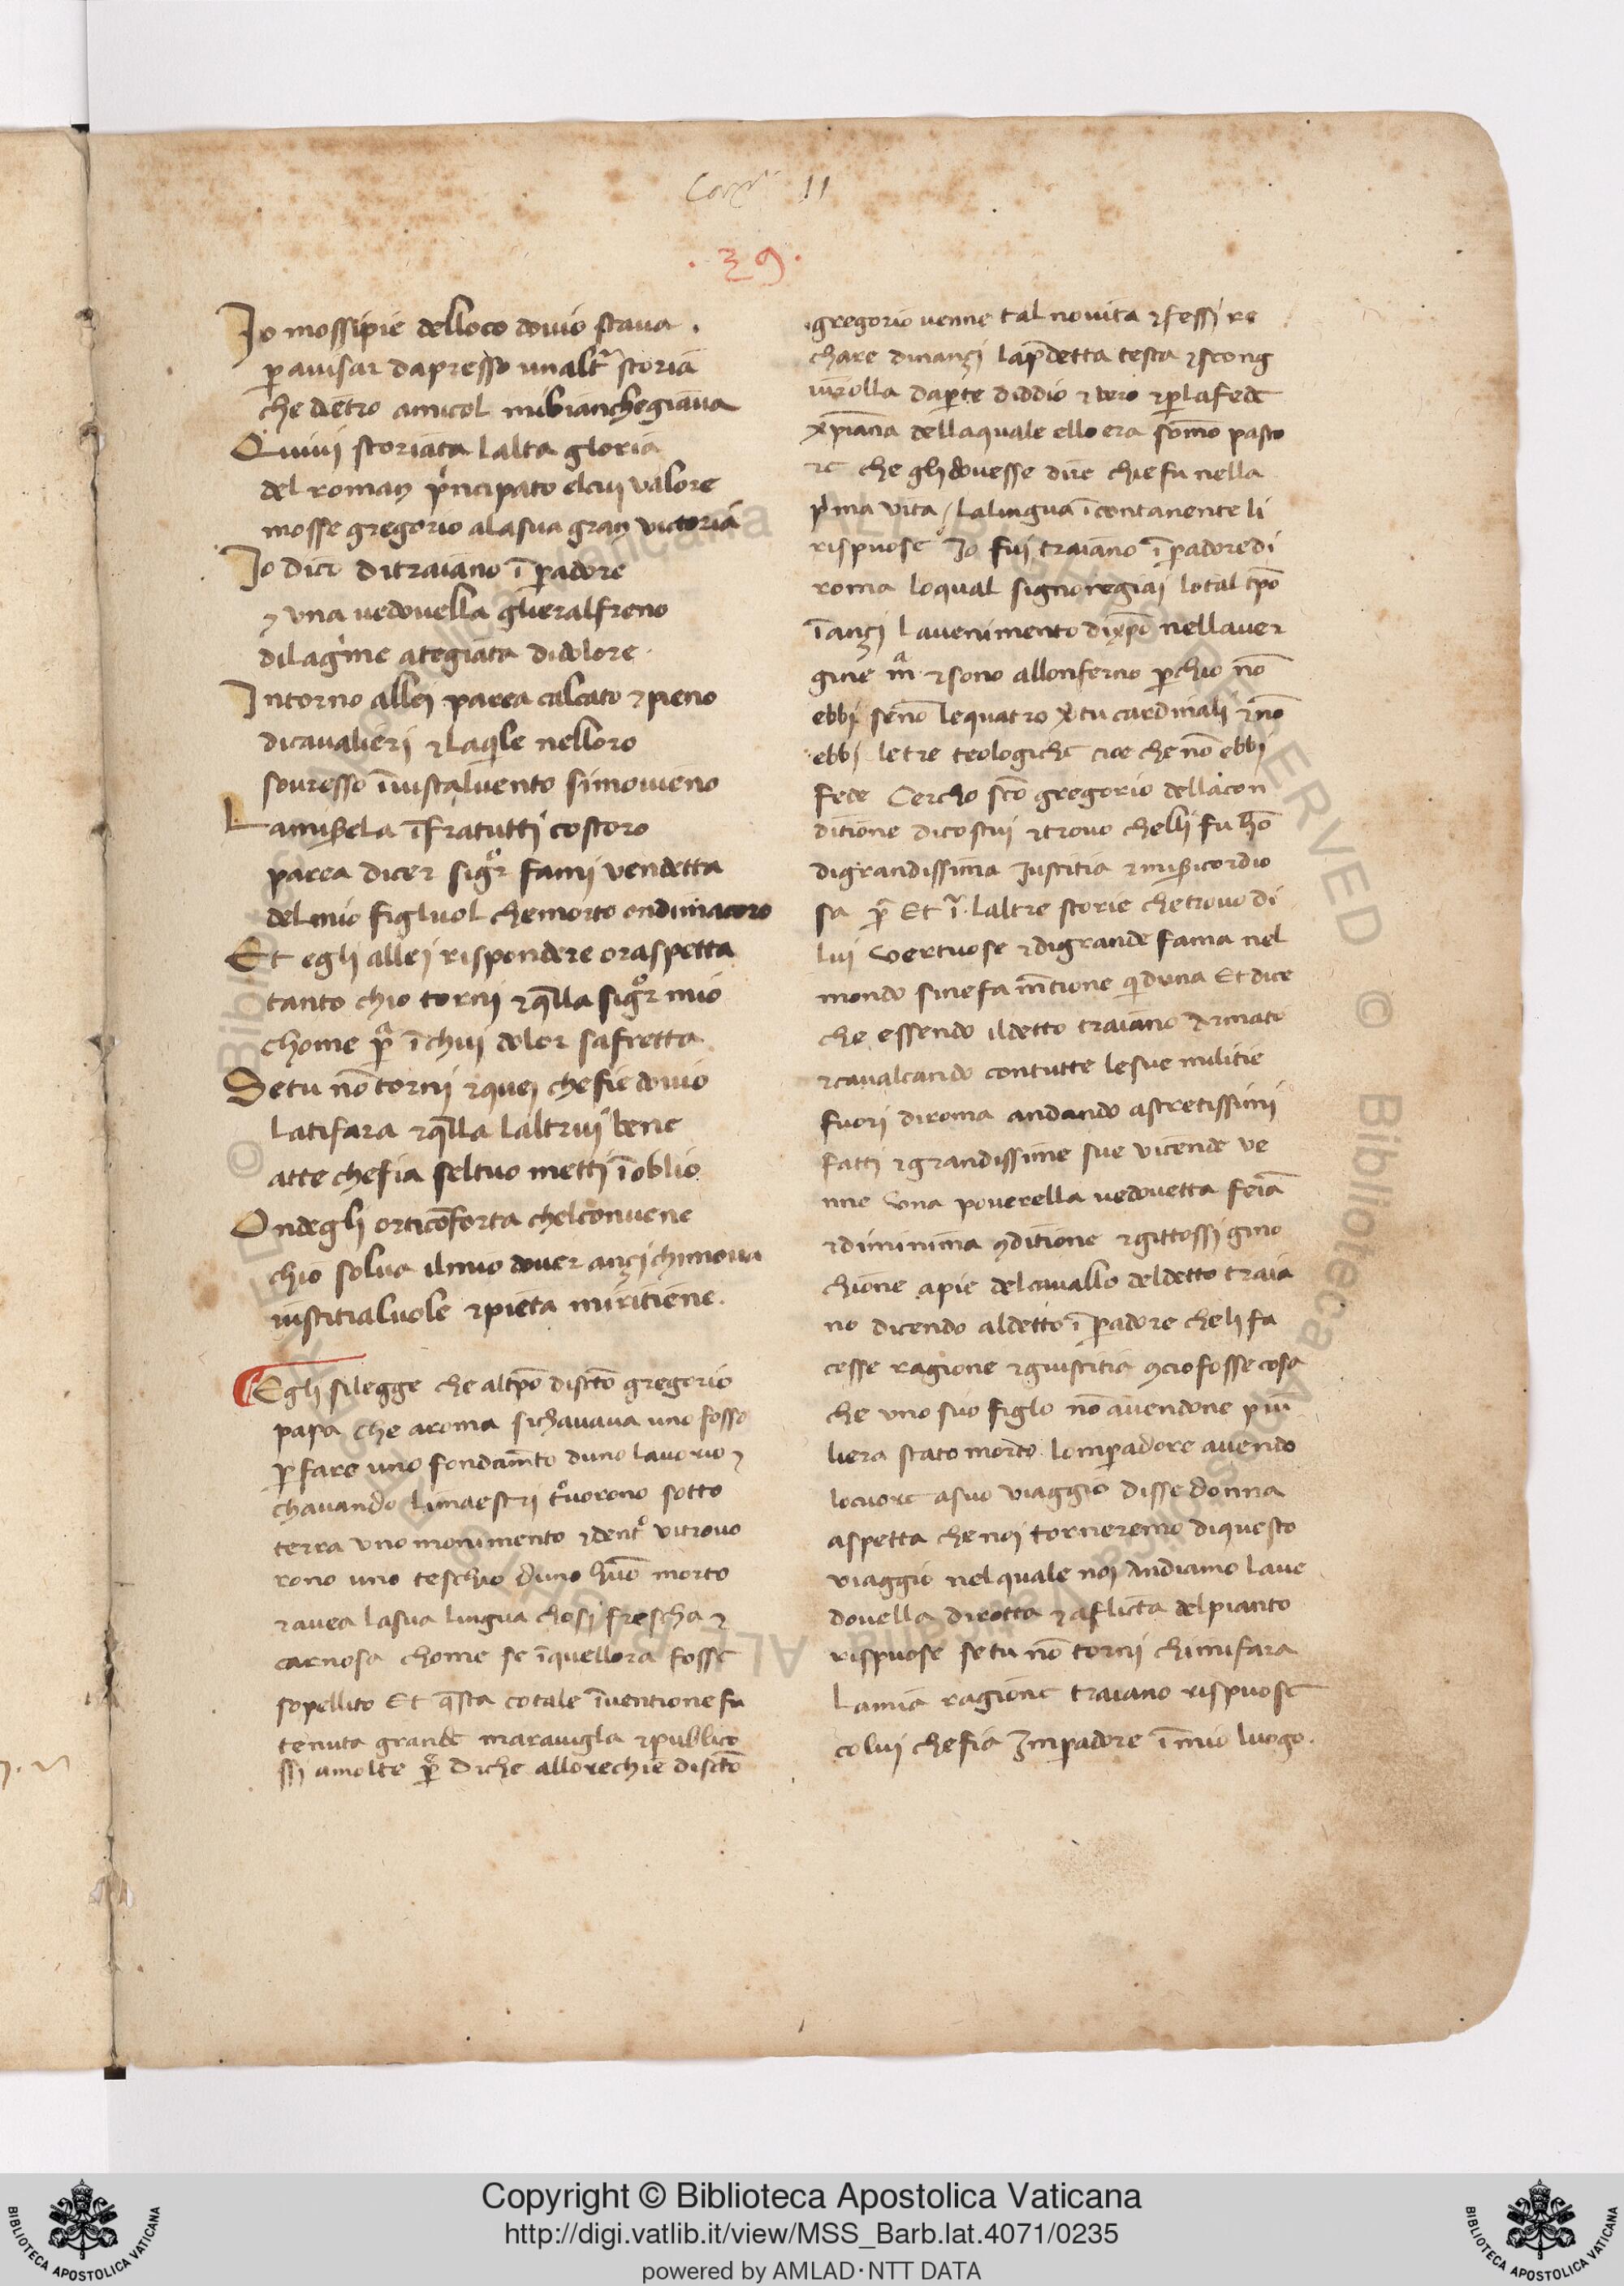 11
.39.
Io mossipie delloco douio staua .
p̱ auisar dapresso unaltr̃ storia
che dietro amicol mibianchegiaua
Quiui storiata lalta gloria
del roman p'ncipato elcui ualore
mosse gregorio alasua gran uictoria
Io dico ditraiano īp̱adore
⁊ una uedouella glieralfreno
dilag'me ategiata didolore.
Intorno allei parea calcato ⁊ pieno
dicaualieri ⁊ laq̄le nelloro
souresso īuistaluento simouieno
Lamiẜela īfratutti costoro
parea dicer sigr̊ fami uendetta
delmio figluol chemorto ondimacoro
Et egli allei rispondere oraspetta
tanto chio torni ⁊ q̄lla sigr̊ mio
chome p̱ª īchui dolor safretta
Setu nō torni ⁊ quei chefie douio
latifara ⁊ q̄lla laltrui bene
atte chefia seltuo metti īoblio
Ondegli orticōforta chelconuene
chio solua ilmio douer anzi chimoua
iustitialuole ⁊ pieta miritiene.
Egli silegge che altp̄o discō gregorio
papa che aroma sichauaua uno fosso
p̱ fare uno fondam̄to duno lauorio ⁊
chauando limaestri t°uorono sotto
terra uno monimento ⁊ dent° uitrouo
rono uno teschio duno huō morto
⁊ auea lasua lingua chosi frescha ⁊
carnosa chome se īquellora fosse
sopellito Et q̄sta cotale īuentione fu
tenuta grande marauigla ⁊ publico
ssi amolte p̱ẜ Diche allorechie discō
gregorio uenne tal nouita ⁊ fessi re
chare dinanzi lap̄detta testa ⁊ scong
iurolla dap̱te diddio ⁊ uero ⁊ p̱ lafede
xp̄iana dellaquale ello era sōmo pasto
re che gli douesse dire chie fu nella
p'ma uita / lalingua īcontanente li
rispuose Io fui traiano īp̱adore di
roma loqual signoregiai lotal tp̄o
īanzi lauenimento dixp̄o nellauer
gine mª ⁊ sono allonferno p̱chio nō
ebbi senō lequatro v̊tu cardinali ⁊ nō
ebbi le tre teologiche cioe che nō ebbi
fede Cercho scō gregorio dellacon
ditione dicostui ⁊ trouo chelli fu hō
digrandissima Iustitia ⁊ miẜicordio
sa p̱ª Et ī laltre storie chetrouo di
lui uertuose ⁊ digrande fama nel
mondo sinefa m̄tione q' duna Et dice
che essendo ildetto traiano armato
⁊ caualcando contutte lesue militie
fuori diroma andando astretissimi
fatti ⁊ grandissime sue uicende ue
nne una pouerella uedouetta feia
⁊ diminima ꝯditione ⁊ gittossi gino
chione apie delcauallo deldetto traia
no dicendo aldetto īp̱adore cheli fa
cesse ragione ⁊ giustitia ꝯcio fosse cosa
che uno suo figlo nō auendone piu
liera stato morto lomp̱adore auendo
locuore asuo uiaggio disse donna
aspetta che noi torneremo diquesto
uiaggio nelquale noi andiamo laue
douella dirotta ⁊ aflicta delpianto
rispuose setu nō torni chimifara
lamia ragione traiano rispuose
colui chefia Imp̱adore īmio luogo.
Copyright © Biblioteca Apostolica Vaticana
http://digi.vatlib.it/view/MSS_Barb.lat.4071/0235
powered by AMLAD·NTT DATA
BIBLIOTECA APOSTOLICA VATICANA
BIBLIOTECA APOSTOLICA VATICANA